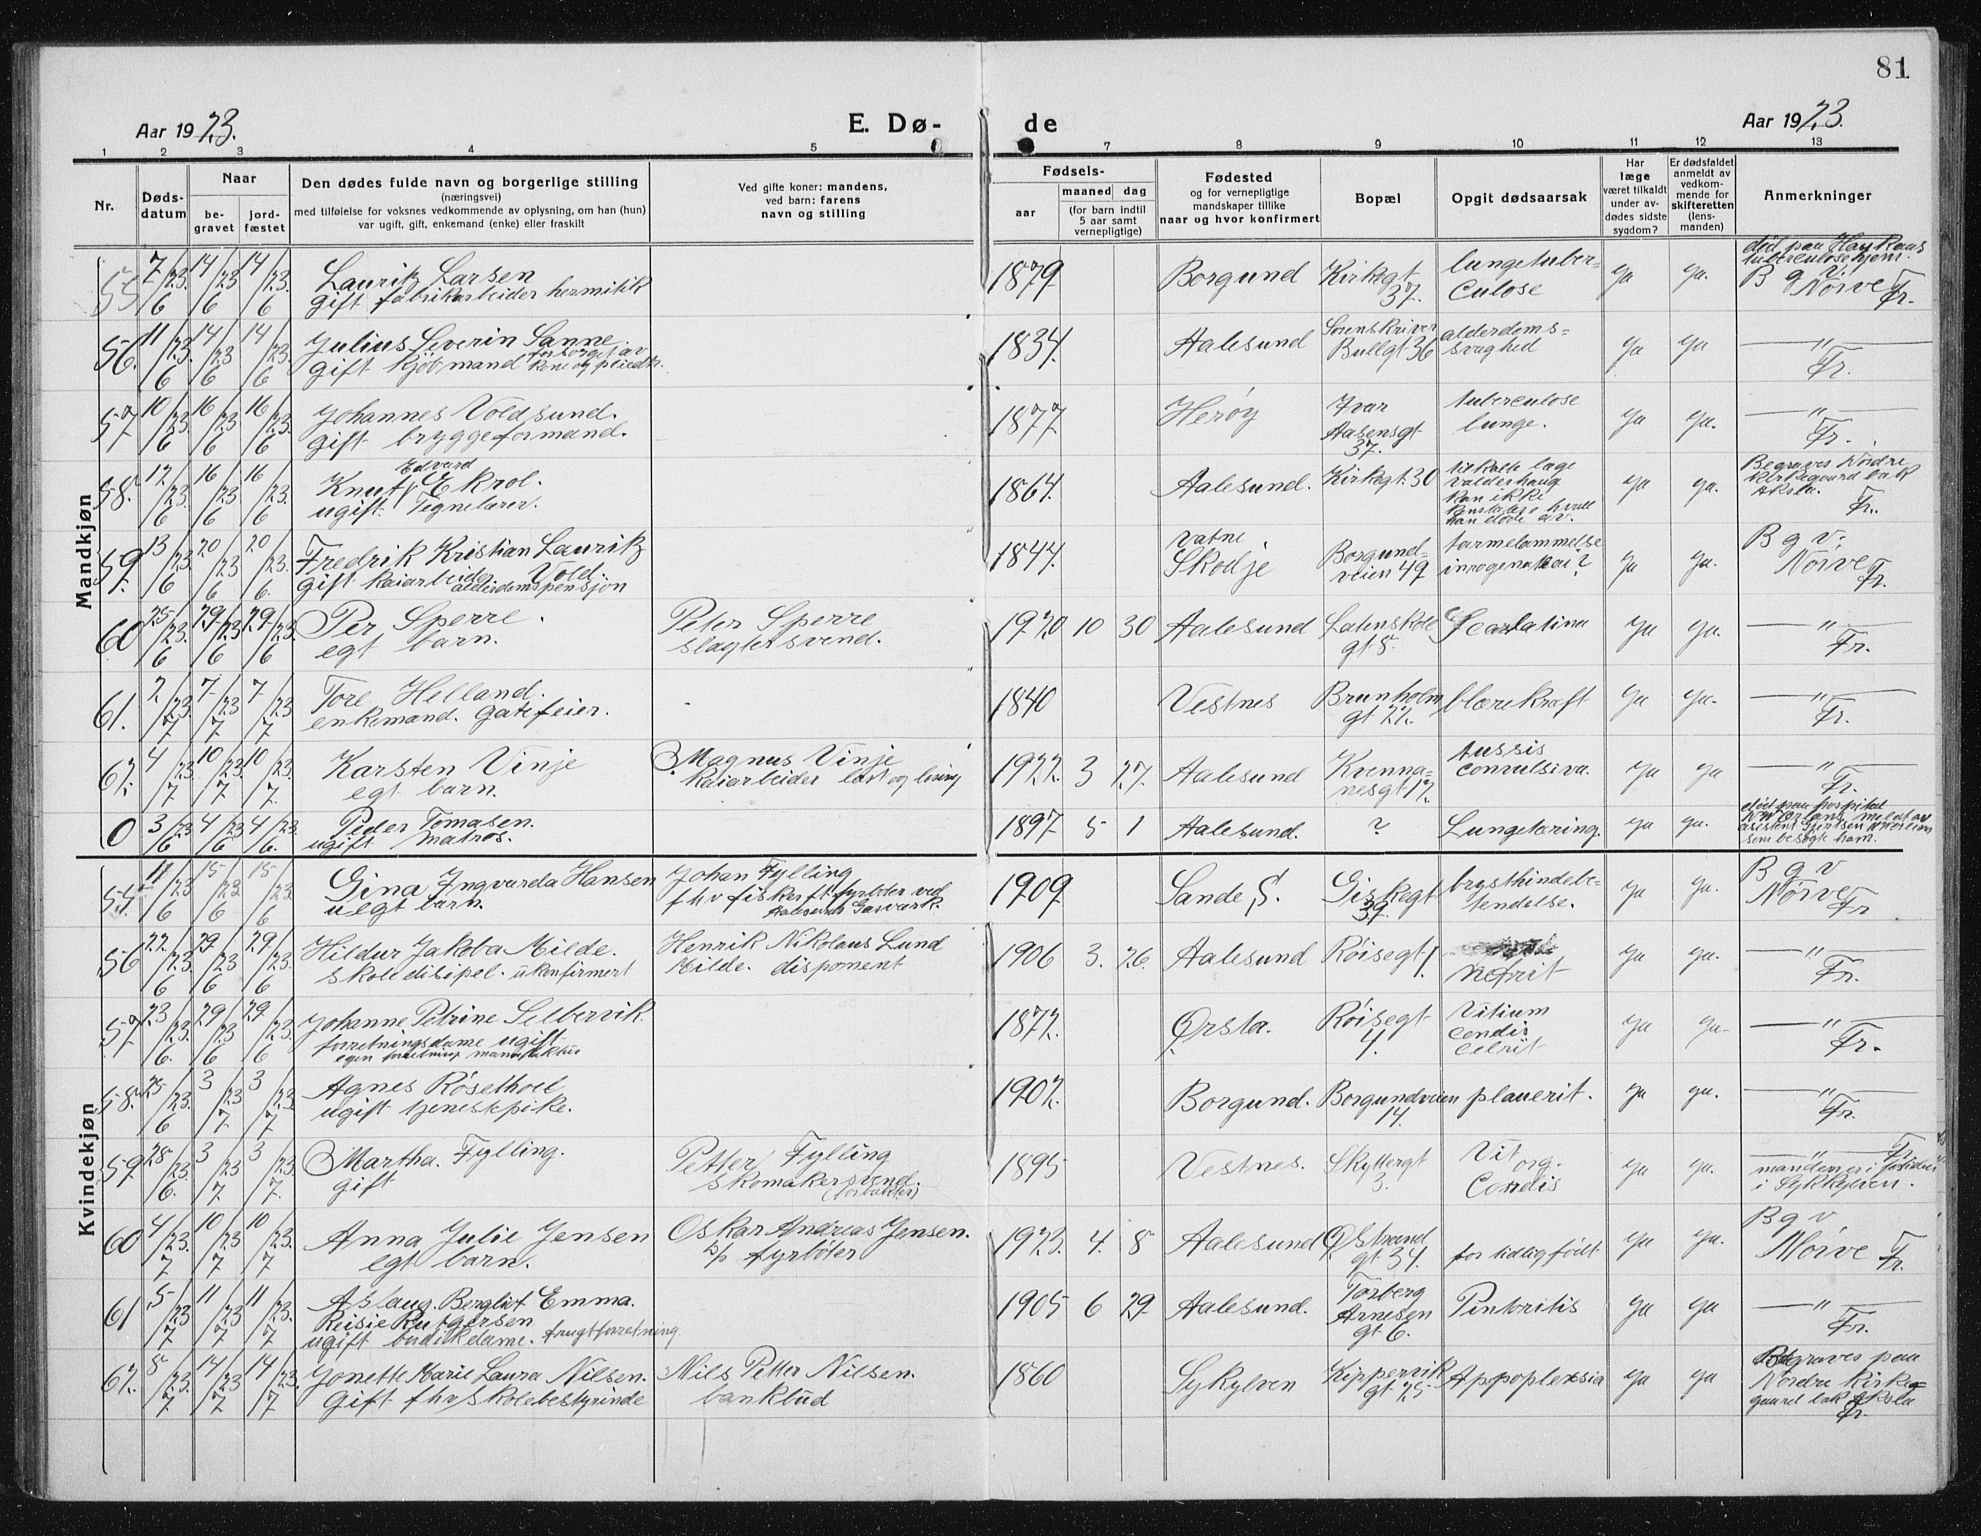 81
Aar 1923.
E. Dø-
de
Aar 1923.
1 2 3 4 5 7 8 9 10 11 12 13
Nr.
Døds-
datum
Naar
be-
gravet
jord-
fæstet
Den dødes fulde navn og borgerlige stilling
(næringsvei)
med tilføielse for voksnes vedkommende av oplysning, om han (hun)
var ugift, gift, enkemand (enke) eller fraskilt
Ved gifte koner: mandens,
ved barn: farens
navn og stilling
Fødsels-
aar
maaned dag
(for barn indtil
5 aar samt
vernepligtige)
Fødested
og for vernepligtige
mandskaper tillike
naar og hvor konfirmert
Bopæl
Opgit dødsaarsak
Har
læge
været tilkaldt
under av-
dødes sidste
sygdom?
Er dødsfaldet
anmeldt av
vedkom-
mende for
skifteretten
(lens-
manden)
Anmerkninger
Mandkjøn
55 7/6 23. 14/6 23 14/6 23. Lauritz Larsen
gift fabrikarbeider hermitik
1879 Borgund Kirkegt 37. lungetuber-
culose ja ja. død paa Haukaas
tuberculosehjem.
B g v.
Nørve Fr.
56. 11/6 23. 14/6 23 14/6 23. Julius Severin Sanne.
gift kjøbmand forsørget av
kone og pliedtr.
1834. Aalesund Sorenskriver
Bullgt 36 alderdoms-
svaghed ja ja — " —
Fr.
57 10/6 23. 16/6 23 16/6 23. Johannes Voldsund.
gift bryggeformand.
1877 Herøy Ivar
Aasensgt
37. tuberculose
lunge. ja ja. — " —
Fr.
58. 12/6 23. 16/6 23 16/6 23. Knut Edvard Ekrol.
ugift. Tegnelærer.
1864. Aalesund. Kirkegt. 30 tilkaldte læge
Valderhaug
kan ikke
konstatere hvad
han døde av. ja ja. Begraves Nordre
kirkegaard bak
Aksla.
Fr.
59. 13/6 23. 20/6 23 20/6 23. Fredrik Kristian Lauritz
Vold.
gift kaiarbeider alderdomspensjon
1844. Vatne
Skodje Borgund-
veien 49 tarmelammelse
ja ja. B g v.
Nørve Fr.
60 25/6 23. 29/6 23 29/6 23. Per Sperre.
egt barn. Peter Sperre
slagtersvend.
1920 10 30 Aalesund Latinskole
gt 5. Scarlatina ja ja. — " —
Fr.
61. 2/7 23. 7/7 23 7/7 23 Tore Helland.
enkemand. gatefeier.
1840 Vestnes Brunholm
gt 22. blærekræft ja ja. — " —
Fr.
62. 4/7 23. 10/7 23. 10/7 23. Karsten Vinje
egt barn. Magnus Vinje
kaiarbeider last og losing
1922. 3 27. Aalesund Kvenna-
nesgt 12. tussis
convulsiva. ja ja — " —
Fr.
0 3/6 23 4/6 23 4/6 23. Peder Tomasen.
ugift matros.
1897 5 1 Aalesund. ? Lungetæring. ja ja. død paa hospital
sem besøgte ham.
Kvindekjøn
55 11/6 23 15/6 23 15/6 23 Gina Ingvarda Hansen
uegt barn. Johan Fylling
fhv fisker ft. fyrbøter ved
Aalesunds Gasverk.
1909 Sande, S. Giskegt
39. brysthindebe-
tendelse. ja ja. B g v
Nørve
Fr
56 22./6 23. 29/6 23 29/6 23. Hildur Jakoba Milde.
skoledisipel. ukonfirmert Henrik Nikolaus Lund
Milde. disponent
1906 3. 26. Aalesund Røisegt 1. nefrit ja ja. — " —
Fr.
57 23/6. 23. 29/6 23 29/6 23. Johanne Petrine Selbervik
forretningsdame ugift
egen forretning manufaktur
1872. Ørsta. Røisegt
4. Vitium
cordis
ja ja. — " —
Fr.
58. 25/6 23. 3/7 23 3/7 23. Agnes Røsethoel
ugift tjenestepike.
1902. Borgund. Borgundveien
44. pleuerit. ja ja. — " —
Fr.
59 28/6. 23 3/7 23 3/7 23. Martha. Fylling.
gift Petter Fylling
skomakersvend.
1895 Vestnes. Skyttergt
3. Vit org.
Cordis ja ja. — " — Fr.
i Sykkylven.
60 4/7 23. 10/7 23 10/7 23. Anna Julie Jensen
egt barn. Oskar Andreas Jensen.
fyrbøter
1923. 4. 8 Aalesund Ø Strand
gt 34. for tidlig født. ja ja. B g v
Nørve Fr.
61 5/7 23 11/7 23 11/7 23. Aslaug Bergliot Emma.
Reisie Rutgersen
ugift butikdame. frugtforretning
1905 6 29. Aalesund. Torberg
Arnesen
gt. 6. ja ja — " —
Fr.
62. 8/7 23. 14/7 23 14/7 23. Jonette Marie Laura Nilsen.
gift fhv skolebestyrinde Nils Petter Nilsen.
bankbud
1860 Sykylven Kippervik
gt. 25 Appoplexia ja ja Begraves paa
Nordre kirke-
gaard bak Aksla
Fr.